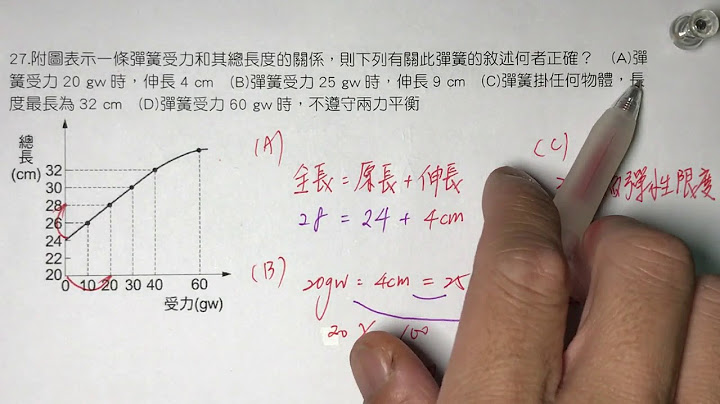 27.附圖表示一條彈簧受力和其總長度的關係，則下列有關此彈簧的敘述何者正確？ (A)彈
簧受力 20 gw 時，伸長 4 cm (B)彈簧受力 25 gw 時，伸長 9 cm (C)彈簧掛任何物體，長
度最長為 32 cm (D)彈簧受力 60 gw 時，不遵守兩力平衡
總長
(cm)
32
30
28
26
24
22
20
0 10 20 30 40 60
受力(gw)
(A)
全長 = 原長 + 伸長
28 = 24 + 4cm
(B)
20gw = 4cm = 25
20 X 100
(C)
彈性限度